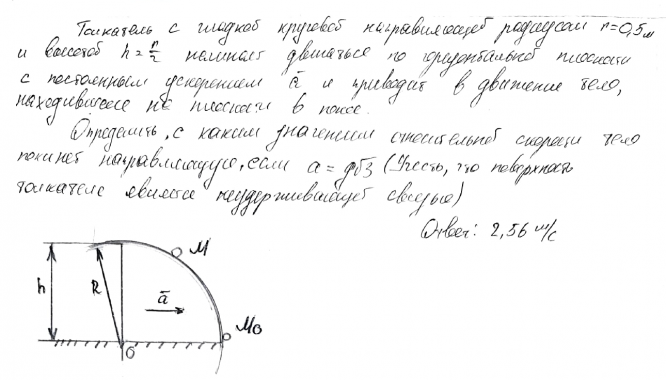 Толкатель с гладкой круговой направляющей радиусом r=0,5м
и высотой h = r/2 начинает двигаться по горизонтальной плоскости
с постоянным ускорением a̅ и приводит в движение тело,
находившееся на плоскости в покое.
Определить, с каким значением относительной скорости тело
покинет направляющую, если a = g√3 (Учесть, что поверхность
толкателя является неудерживающей связью)
Ответ: 2,56 м/с
M
h
R
a̅
M0
O